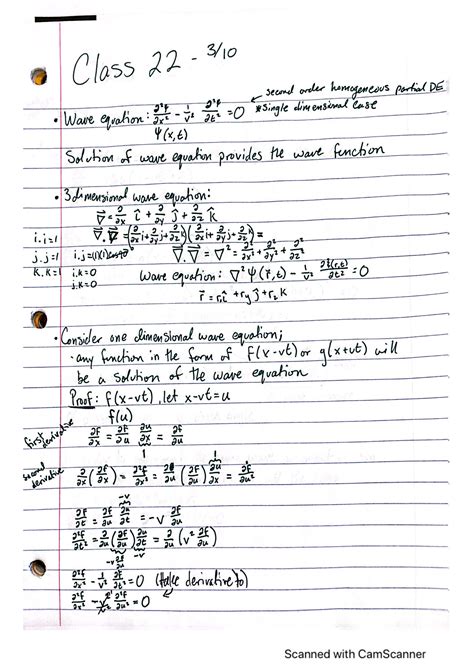 Class 22 - 3/10
second order homogeneous partial DE
• Wave equation: ∂²Ψ/∂x² - 1/v² ∂²Ψ/∂t² = 0 *Single dimensional case
Ψ(x,t)
Solution of wave equation provides the wave function
• 3 dimensional wave equation:
∇ = ∂/∂x î + ∂/∂y ĵ + ∂/∂z k̂
i.i=1 ∇.∇ = (∂/∂x i + ∂/∂y j + ∂/∂z k)(∂/∂x i + ∂/∂y j + ∂/∂z k) =
j.j=1 i.j=(1)(1)cos90° ∇.∇ = ∇² = ∂²/∂x² + ∂²/∂y² + ∂²/∂z²
k.k=1 i.k=0
j.k=0
Wave equation: ∇²Ψ(r,t) - 1/v² ∂²(r,t)/∂t² = 0
r = r₁î + r_y ĵ + r₂ k
• Consider one dimensional wave equation;
· any function in the form of f(x-vt) or g(x+vt) will
be a solution of the wave equation
Proof: f(x-vt), let x-vt=u
f(u)
first derivative ∂f/∂x = ∂f/∂u ∂u/∂x = ∂f/∂u
1 1
second derivative ∂/∂x(∂f/∂x) = ∂²f/∂x² = ∂/∂u(∂f/∂u)∂u/∂x = ∂²f/∂u²
-v
∂f/∂t = ∂f/∂u ∂u/∂t = -v ∂f/∂u
∂²f/∂t² = ∂/∂u(∂f/∂u)∂u/∂t = ∂/∂u(v² ∂f/∂u)
-v ∂f/∂u -v
∂²f/∂x² - 1/v² ∂f/∂t² = 0 (take derivative to)
∂²f/∂x² - v²/v² ∂²f/∂u² = 0
Scanned with CamScanner